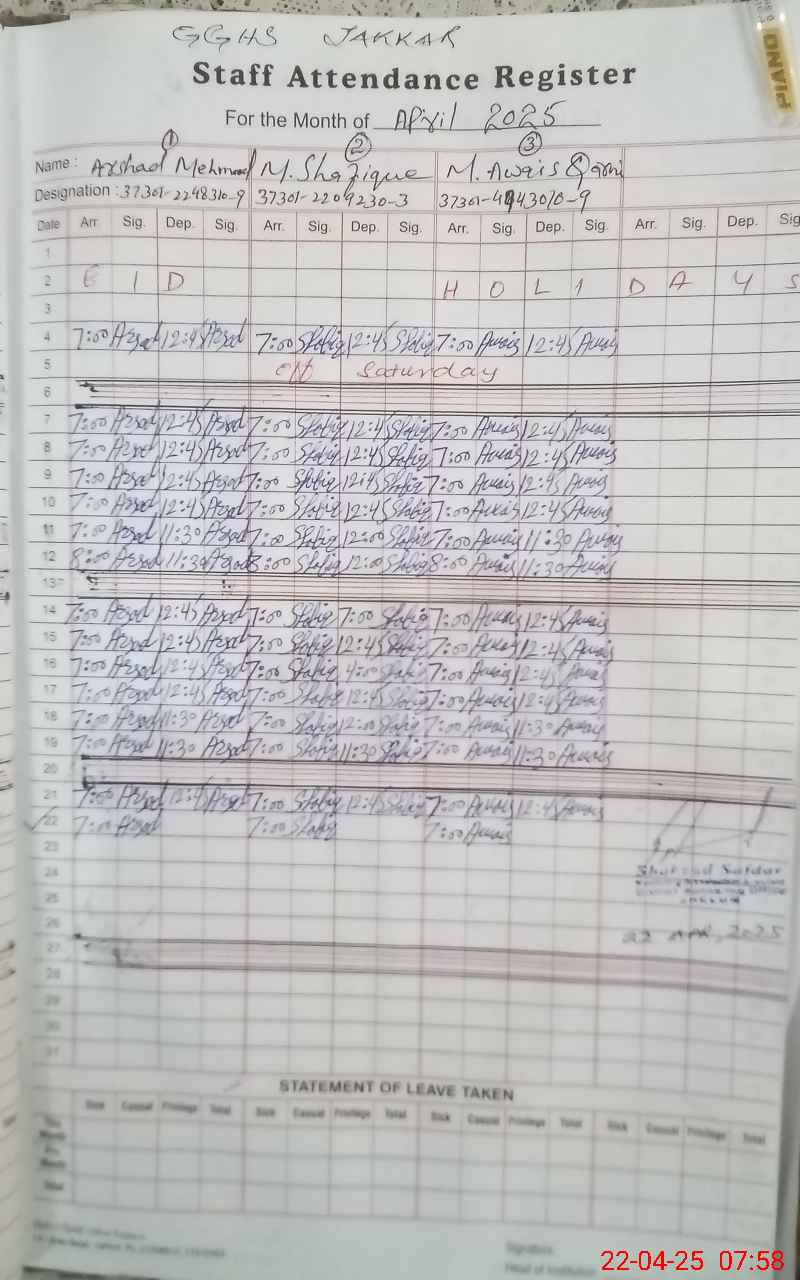 GGHS JAKKAR
PIANO
Staff Attendance Register
For the Month of April 2025
1 2 3
Name : Arshad Mehmood M. Shafique M. Awais Qarni
Designation : 37301-2248310-9 37301-2209230-3 37301-4943070-9
Date Arr. Sig. Dep. Sig. Arr. Sig. Dep. Sig. Arr. Sig. Dep. Sig. Arr. Sig. Dep. Sig
1
2 E I D H O L I D A Y S
3
4 7:00 Arsad 12:45 Arsad 7:00 Shafiq 12:45 Shafiq 7:00 Awais 12:45 Awais
5 off Saturday
6
7 7:00 Arsad 12:45 Arsad 7:00 Shafiq 12:45 Shafiq 7:00 Awais 12:45 Awais
8 7:00 Arsad 12:45 Arsad 7:00 Shafiq 12:45 Shafiq 7:00 Awais 12:45 Awais
9 7:00 Arsad 12:45 Arsad 7:00 Shafiq 12:45 Shafiq 7:00 Awais 12:45 Awais
10 7:00 Arsad 12:45 Arsad 7:00 Shafiq 12:45 Shafiq 7:00 Awais 12:45 Awais
11 7:00 Arsad 11:30 Arsad 7:00 Shafiq 12:00 Shafiq 7:00 Awais 11:30 Awais
12 8:00 Arsad 11:30 Arsad 8:00 Shafiq 12:00 Shafiq 8:00 Awais 11:30 Awais
13
14 7:00 Arsad 12:45 Arsad 7:00 Shafiq 7:00 Shafiq 7:00 Awais 12:45 Awais
15 7:00 Arsad 12:45 Arsad 7:00 Shafiq 12:45 Shafiq 7:00 Awais 12:45 Awais
16 7:00 Arsad 12:45 Arsad 7:00 Shafiq 4:00 Shafiq 7:00 Awais 12:45 Awais
17 7:00 Arsad 12:45 Arsad 7:00 Shafiq 12:45 Shafiq 7:00 Awais 12:45 Awais
18 7:00 Arsad 11:30 Arsad 7:00 Shafiq 12:00 Shafiq 7:00 Awais 11:30 Awais
19 7:00 Arsad 11:30 Arsad 7:00 Shafiq 11:30 Shafiq 7:00 Awais 11:30 Awais
20
21 7:00 Arsad 12:45 Arsad 7:00 Shafiq 12:45 Shafiq 7:00 Awais 12:45 Awais
22 7:00 Arsad 7:00 Shafiq 7:00 Awais
23
24 Safdar
25
26 22 APR, 2025
27
28
29
30
31
STATEMENT OF LEAVE TAKEN
Sick Casual Privilege Total Sick Casual Privilege Total Sick Casual Privilege Total Sick Casual Privilege Total
This Month
Pre. Month
Total
Signature
Head of Institution
22-04-25 07:58